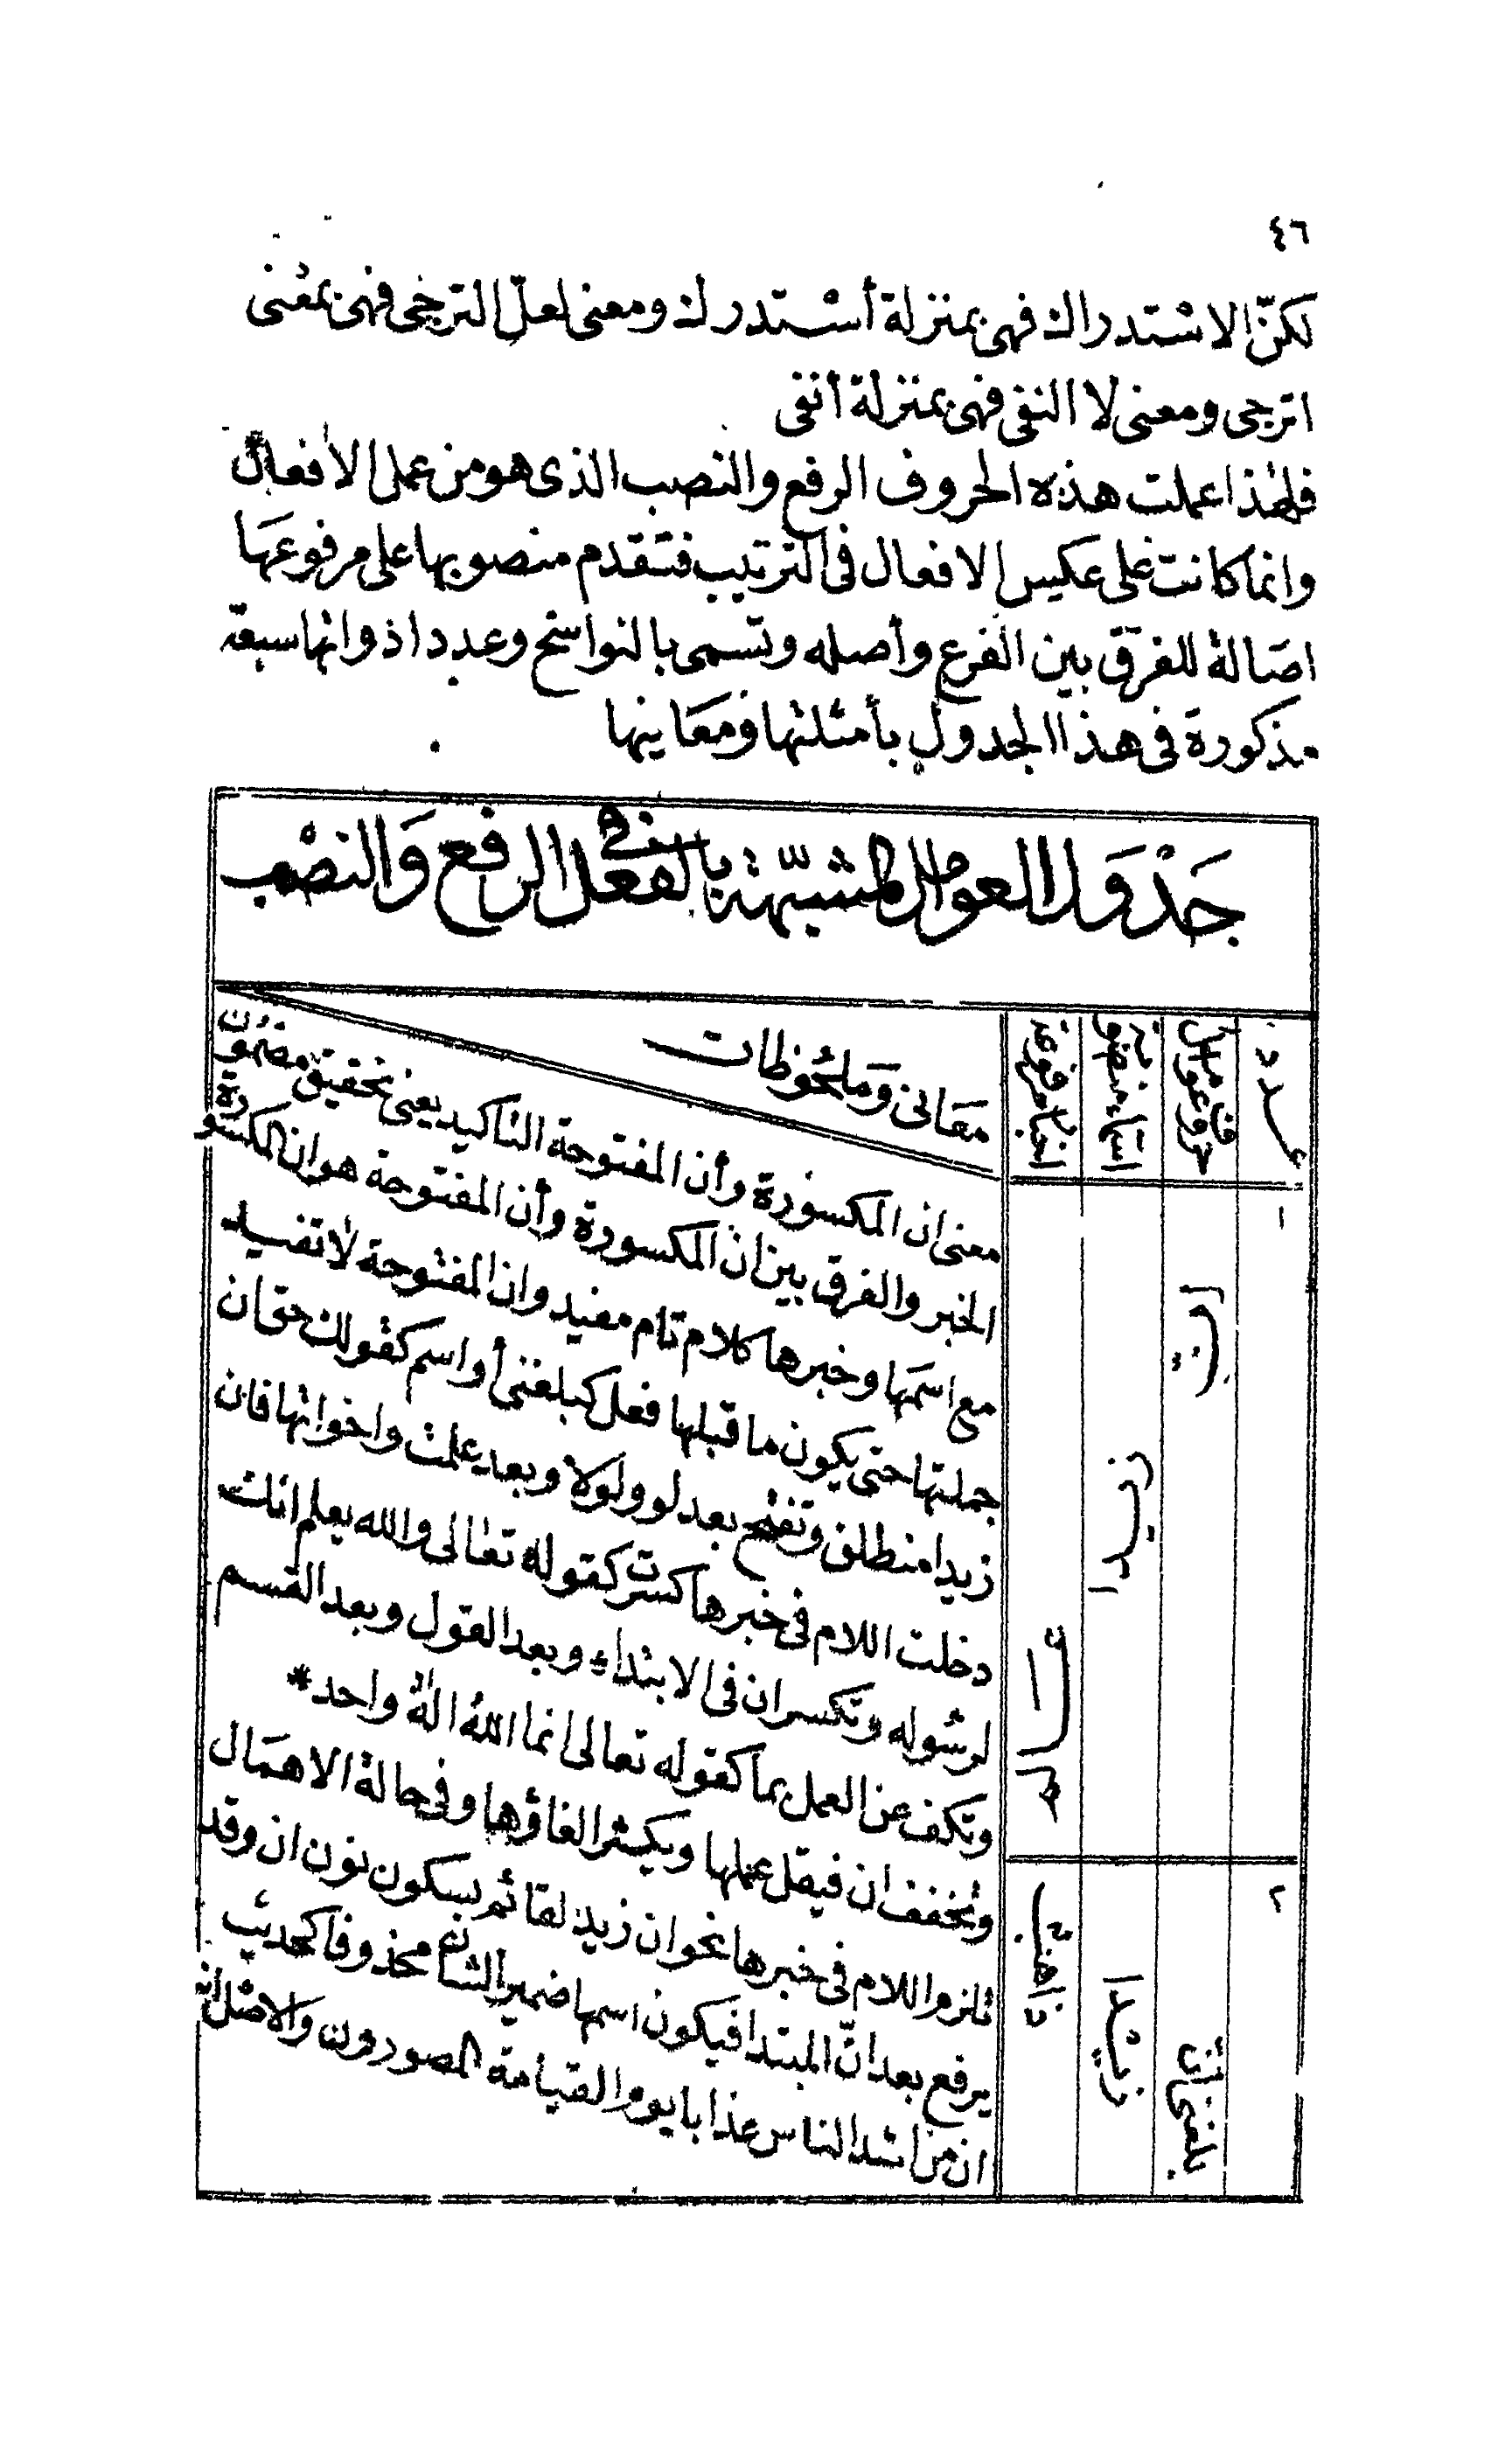 ٤٦
لكنّ الاستدراك فهى بمنزلة أستدرك ومعنى لعلّ الترجى فهى بمعنى
اترجى ومعنى لا النفى فهى بمنزلة أنفى
فلهذا عملت هذه الحروف الرفع والنصب الذى هو من عمل الافعال
وانما كانت على عكس الافعال فى الترتيب فتقدم منصوبها على مرفوعها
اصالة للفرق بين الفرع وأصله وتسمى بالنواسخ وعدد اذواتها سبعة
مذكورة فى هذا الجدول بأمثلتها ومعانيها
جدول العوامل المشبهة بالفعل فى الرفع والنصب
عدد
حروف عوامل
اسماء منصوبة
اخبار مرفوعة
معانى وملحوظات
١
انّ
زيدا
معنى ان المكسورة وأن المفتوحة التاكيد يعنى تحقيق مضمون
الخبر والفرق بين ان المكسورة وأن المفتوحة هو ان المكسورة
مع اسمها وخبرها كلام تام مفيد وان المفتوحة لا تفيد
جملتها حتى يكون ما قبلها فعل كبلغنى أو اسم كقولك حق ان
زيدا منطلق وتفتح بعد لو ولولا وبعد علمت واخواتها فان
دخلت اللام فى خبرها كسرت كقوله تعالى والله يعلم انك
لرسوله وتكسر ان فى الابتداء وبعد القول وبعد القسم
وتكف عن العمل بما كقوله تعالى انما الله اله واحد *
وتخفف ان فيقل عملها ويكثر الغاؤها وفى حالة الاهمال
تلزم اللام فى خبرها نحو ان زيد لقائم بسكون نون ان وقد
يرفع بعد انّ المبتدا فيكون اسمها ضمير الشان محذوفا كحديث
ان من اشد الناس عذابا يوم القيامة المصورون والاصل انه
٢
بلغنى انّ
زيدا
ذاهب